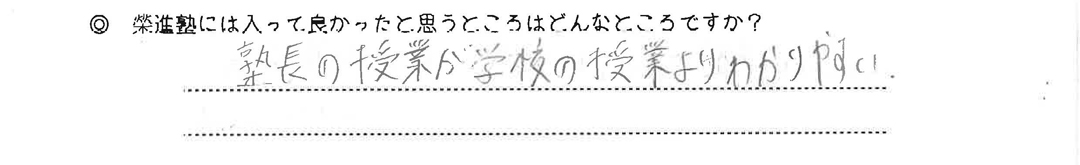 ◎ 榮進塾には入って良かったと思うところはどんなところですか？
塾長の授業が学校の授業よりわかりやすい.